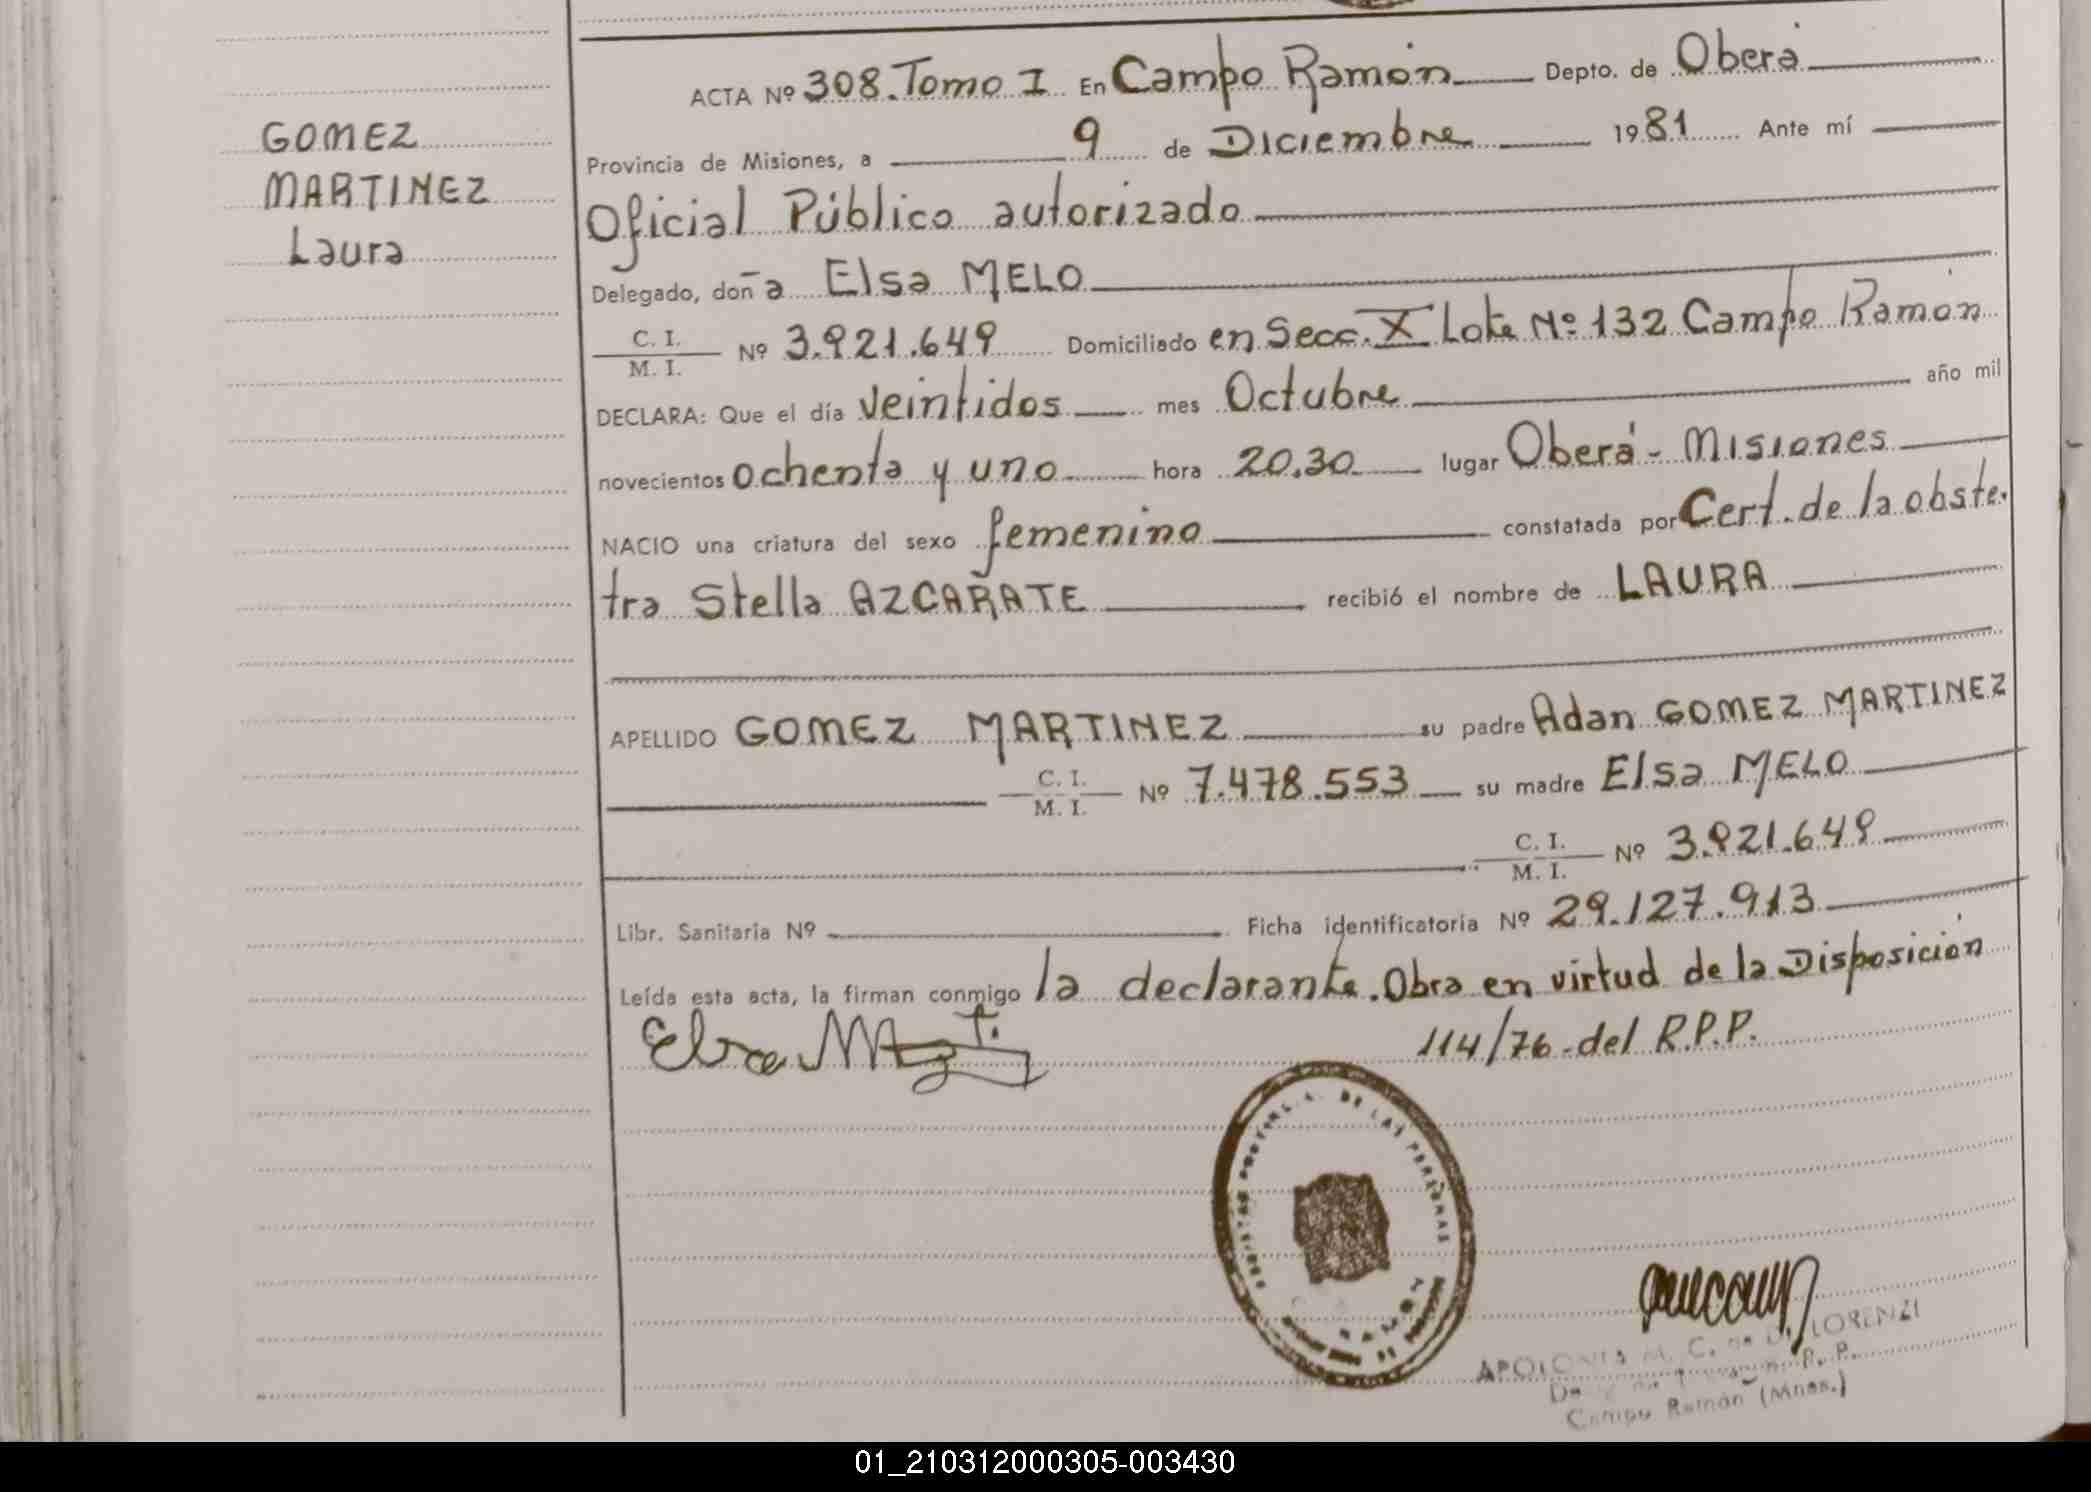 GOMEZ
MARTINEZ
Laura
ACTA Nº 308. Tomo I En Campo Ramón Depto. de Oberá
Provincia de Misiones, a 9 de Diciembre 1981 Ante mí
Oficial Público autorizado
Delegado, doña Elsa MELO
C. I.
M. I. Nº 3.921.649 Domiciliado en Secc. X Lote Nº 132 Campo Ramón
DECLARA: Que el día veintidos mes Octubre año mil
novecientos ochenta y uno hora 20.30 lugar Oberá - Misiones
NACIO una criatura del sexo femenino constatada por Cert. de la obste.
tra Stella AZCARATE recibió el nombre de LAURA
APELLIDO GOMEZ MARTINEZ su padre Adan GOMEZ MARTINEZ
C. I.
M. I. Nº 7.478.553 su madre Elsa MELO
C. I.
M. I. Nº 3.921.649
Libr. Sanitaria Nº Ficha identificatoria Nº 29.127.913
Leída esta acta, la firman conmigo la declarante. Obra en virtud de la Disposición
114/76 - del R.P.P.
DE LAS PERSONAS
APOLONIA M. C. de DI LORENZI
R. P. P.
Campo Ramón (Mnes.)
01_210312000305-003430